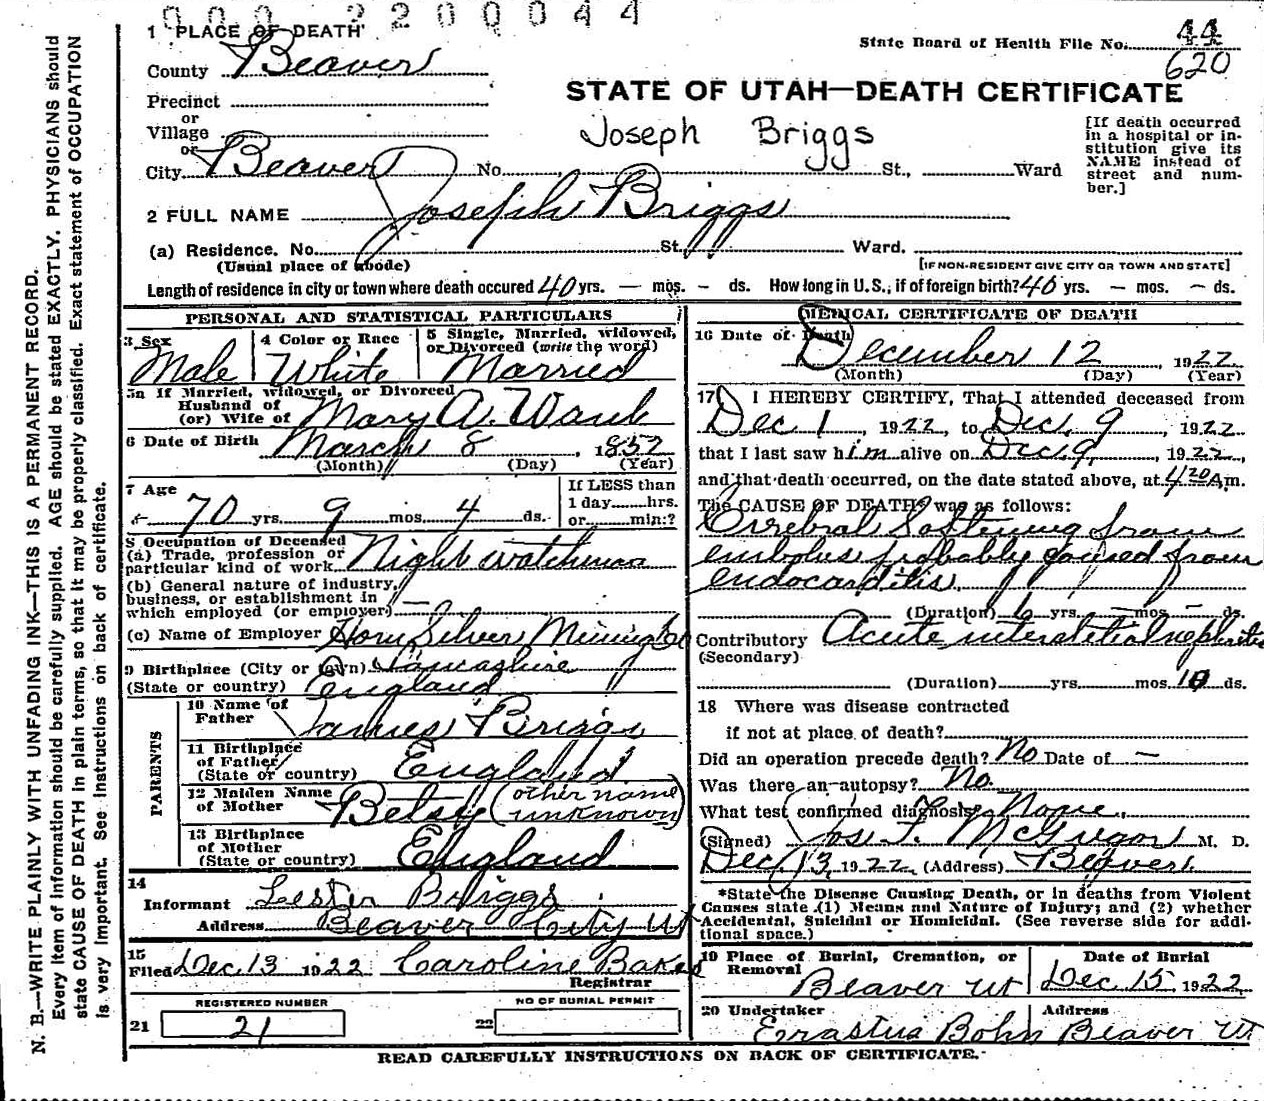 000 2200044
1 PLACE OF DEATH
State Board of Health File No. 44
620
County Beaver
STATE OF UTAH—DEATH CERTIFICATE
Precinct
or
Village
or
City Beaver No. St., Ward
Joseph Briggs
[If death occurred in a hospital or in-
stitution give its
NAME instead of
street and num-
ber.]
2 FULL NAME Joseph Briggs
(a) Residence. No. St. Ward.
(Usual place of abode) [IF NON-RESIDENT GIVE CITY OR TOWN AND STATE]
Length of residence in city or town where death occured 40 yrs. — mos. - ds. How long in U.S., if of foreign birth? 40 yrs. — mos. — ds.
PERSONAL AND STATISTICAL PARTICULARS
3 Sex 4 Color or Race 5 Single, Married, widowed,
or Divorced (write the word)
Male White Married
5a If Married, widowed, or Divorced
Husband of
(or) Wife of Mary A.
6 Date of Birth March 8, 1852
(Month) (Day) (Year)
7 Age If LESS than
1 day hrs.
70 yrs. 9 mos. 4 ds. or min.?
8 Occupation of Deceased
(a) Trade, profession or
particular kind of work Night watchman
(b) General nature of industry,
business, or establishment in
which employed (or employer) —
(c) Name of Employer Horn Silver Mining Co
9 Birthplace (City or town) Lancashire
(State or country) England
PARENTS
10 Name of
Father James Briggs
11 Birthplace
of Father
(State or country) England
12 Maiden Name
of Mother Betsy (other name
unknown)
13 Birthplace
of Mother
(State or country) England
14
Informant Lester Briggs
Address Beaver City Ut
15
Filed Dec. 13 1922 Caroline Baker
Registrar
REGISTERED NUMBER NO OF BURIAL PERMIT
21 21 22
MEDICAL CERTIFICATE OF DEATH
16 Date of Death
December 12, 1922
(Month) (Day) (Year)
17 I HEREBY CERTIFY, That I attended deceased from
Dec 1, 1922, to Dec. 9, 1922
that I last saw him alive on Dec. 9, 1922,
and that death occurred, on the date stated above, at 4 20 A m.
The CAUSE OF DEATH* was as follows:
Cerebral Softening from
embolus probably caused from
endocarditis.
(Duration) 6 yrs. — mos. - ds.
Contributory Acute interstitial nephritis
(Secondary)
(Duration) yrs. mos. 10 ds.
18 Where was disease contracted
if not at place of death?
Did an operation precede death? No Date of —
Was there an autopsy? No.
What test confirmed diagnosis? None.
(Signed) Jos. F. McGregor M. D.
Dec. 13, 1922 (Address) Beaver
*State the Disease Causing Death, or in deaths from Violent
Causes state (1) Means and Nature of Injury; and (2) whether
Accidental, Suicidal or Homicidal. (See reverse side for addi-
tional space.)
19 Place of Burial, Cremation, or Date of Burial
Removal
Beaver Ut Dec. 15 1922
20 Undertaker Address
Erastus Bohn Beaver Ut
READ CAREFULLY INSTRUCTIONS ON BACK OF CERTIFICATE.
N. B.—WRITE PLAINLY WITH UNFADING INK—THIS IS A PERMANENT RECORD.
Every item of information should be carefully supplied. AGE should be stated EXACTLY. PHYSICIANS should
state CAUSE OF DEATH in plain terms, so that it may be properly classified. Exact statement of OCCUPATION
is very important. See instructions on back of certificate.